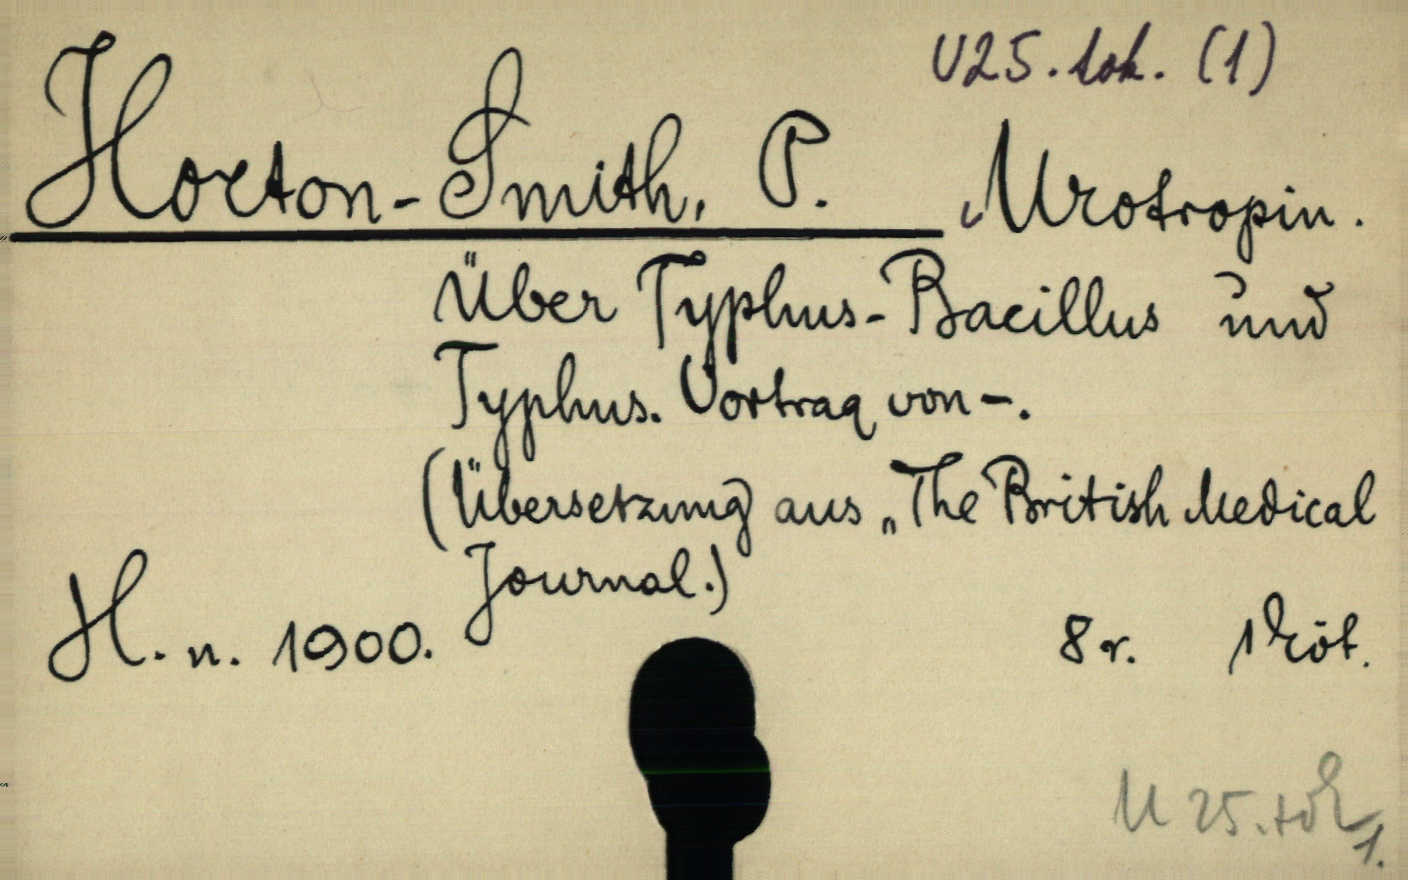 U25.tok. (1)
Horton-Smith, P. Urotropin.
Über Typhus-Bacillus und
Typhus. Vortrag von -.
(Übersetzung aus „The British Medical
Journal.)
H. n. 1900. 8r. 1 köt.
U 25. tok
1.